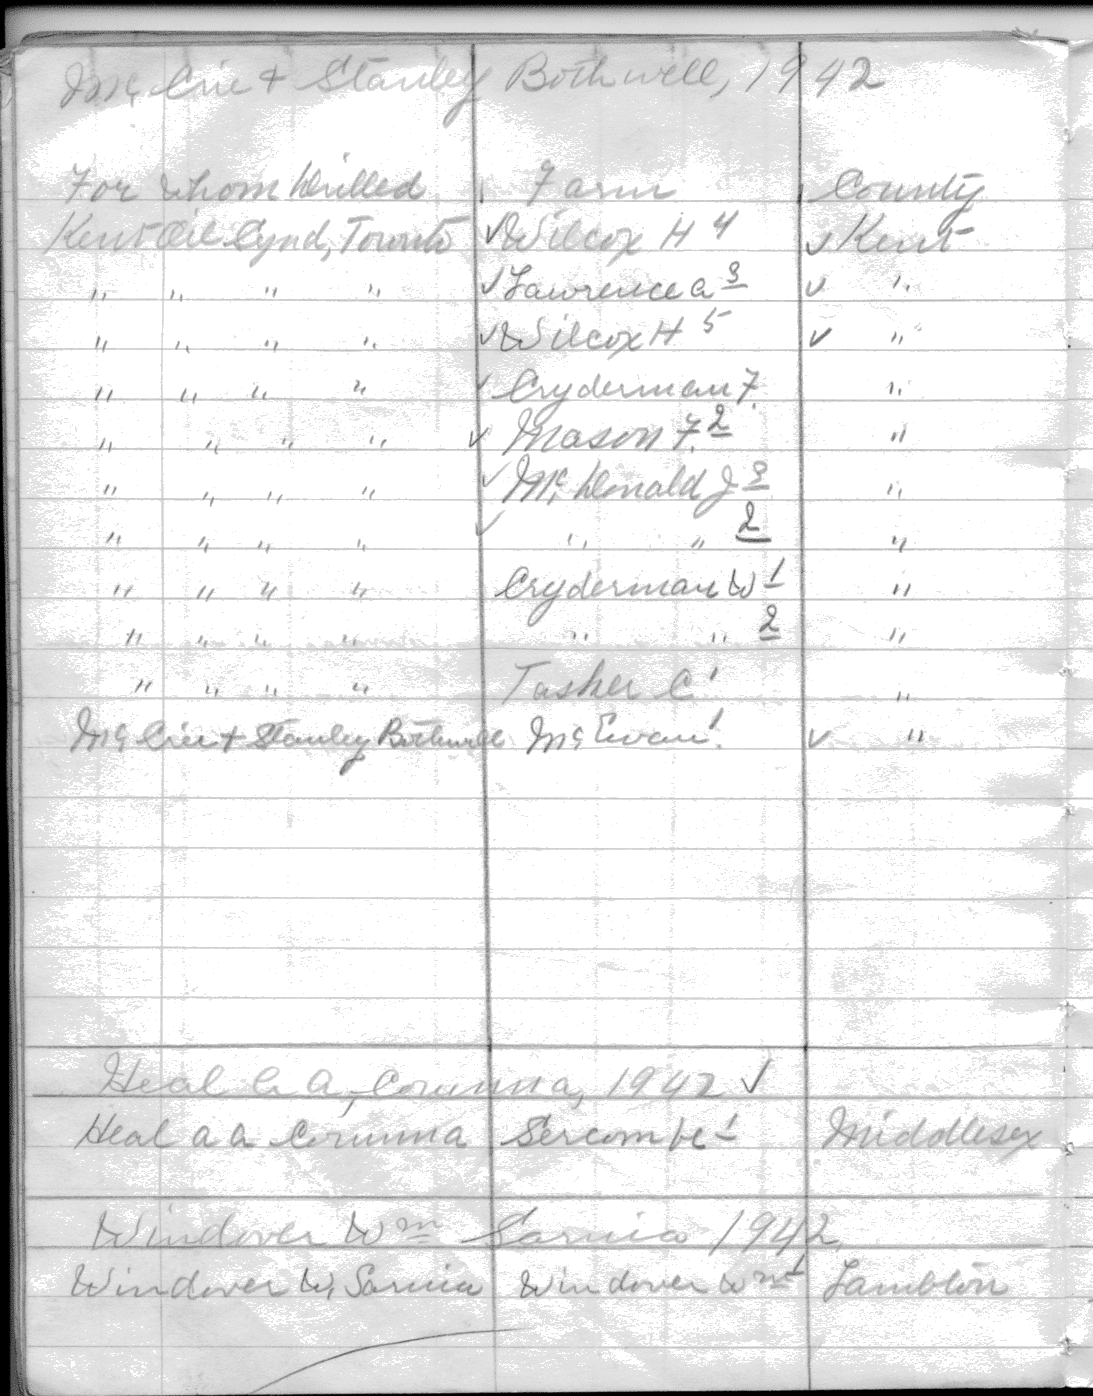 Mc Crie + Stanley Bothwell, 1942
For whom Drilled Farm County
Kent Oil Synd, Toronto ✓ Wilcox H 4 ✓ Kent
" " " " ✓ Lawrence A 3 ✓ "
" " " " ✓ Wilcox H 5 ✓ "
" " " " ✓ Cryderman F. "
" " " " ✓ Mason F. 2 "
" " " " ✓ Mc Donald J 3 "
" " " " ✓ " " 2 "
" " " " Cryderman W 1 "
" " " " " " 2 "
" " " " Tasher C 1 "
Mc Crie + Stanley Bothwell Mc Ewan 1. ✓ "
Heal A A, Corunna, 1942 ✓
Heal A A Corunna Sercombe 1 Middlesex
Windover Wm Sarnia 1942
Windover W, Sarnia Windover Wm 1 Lambton